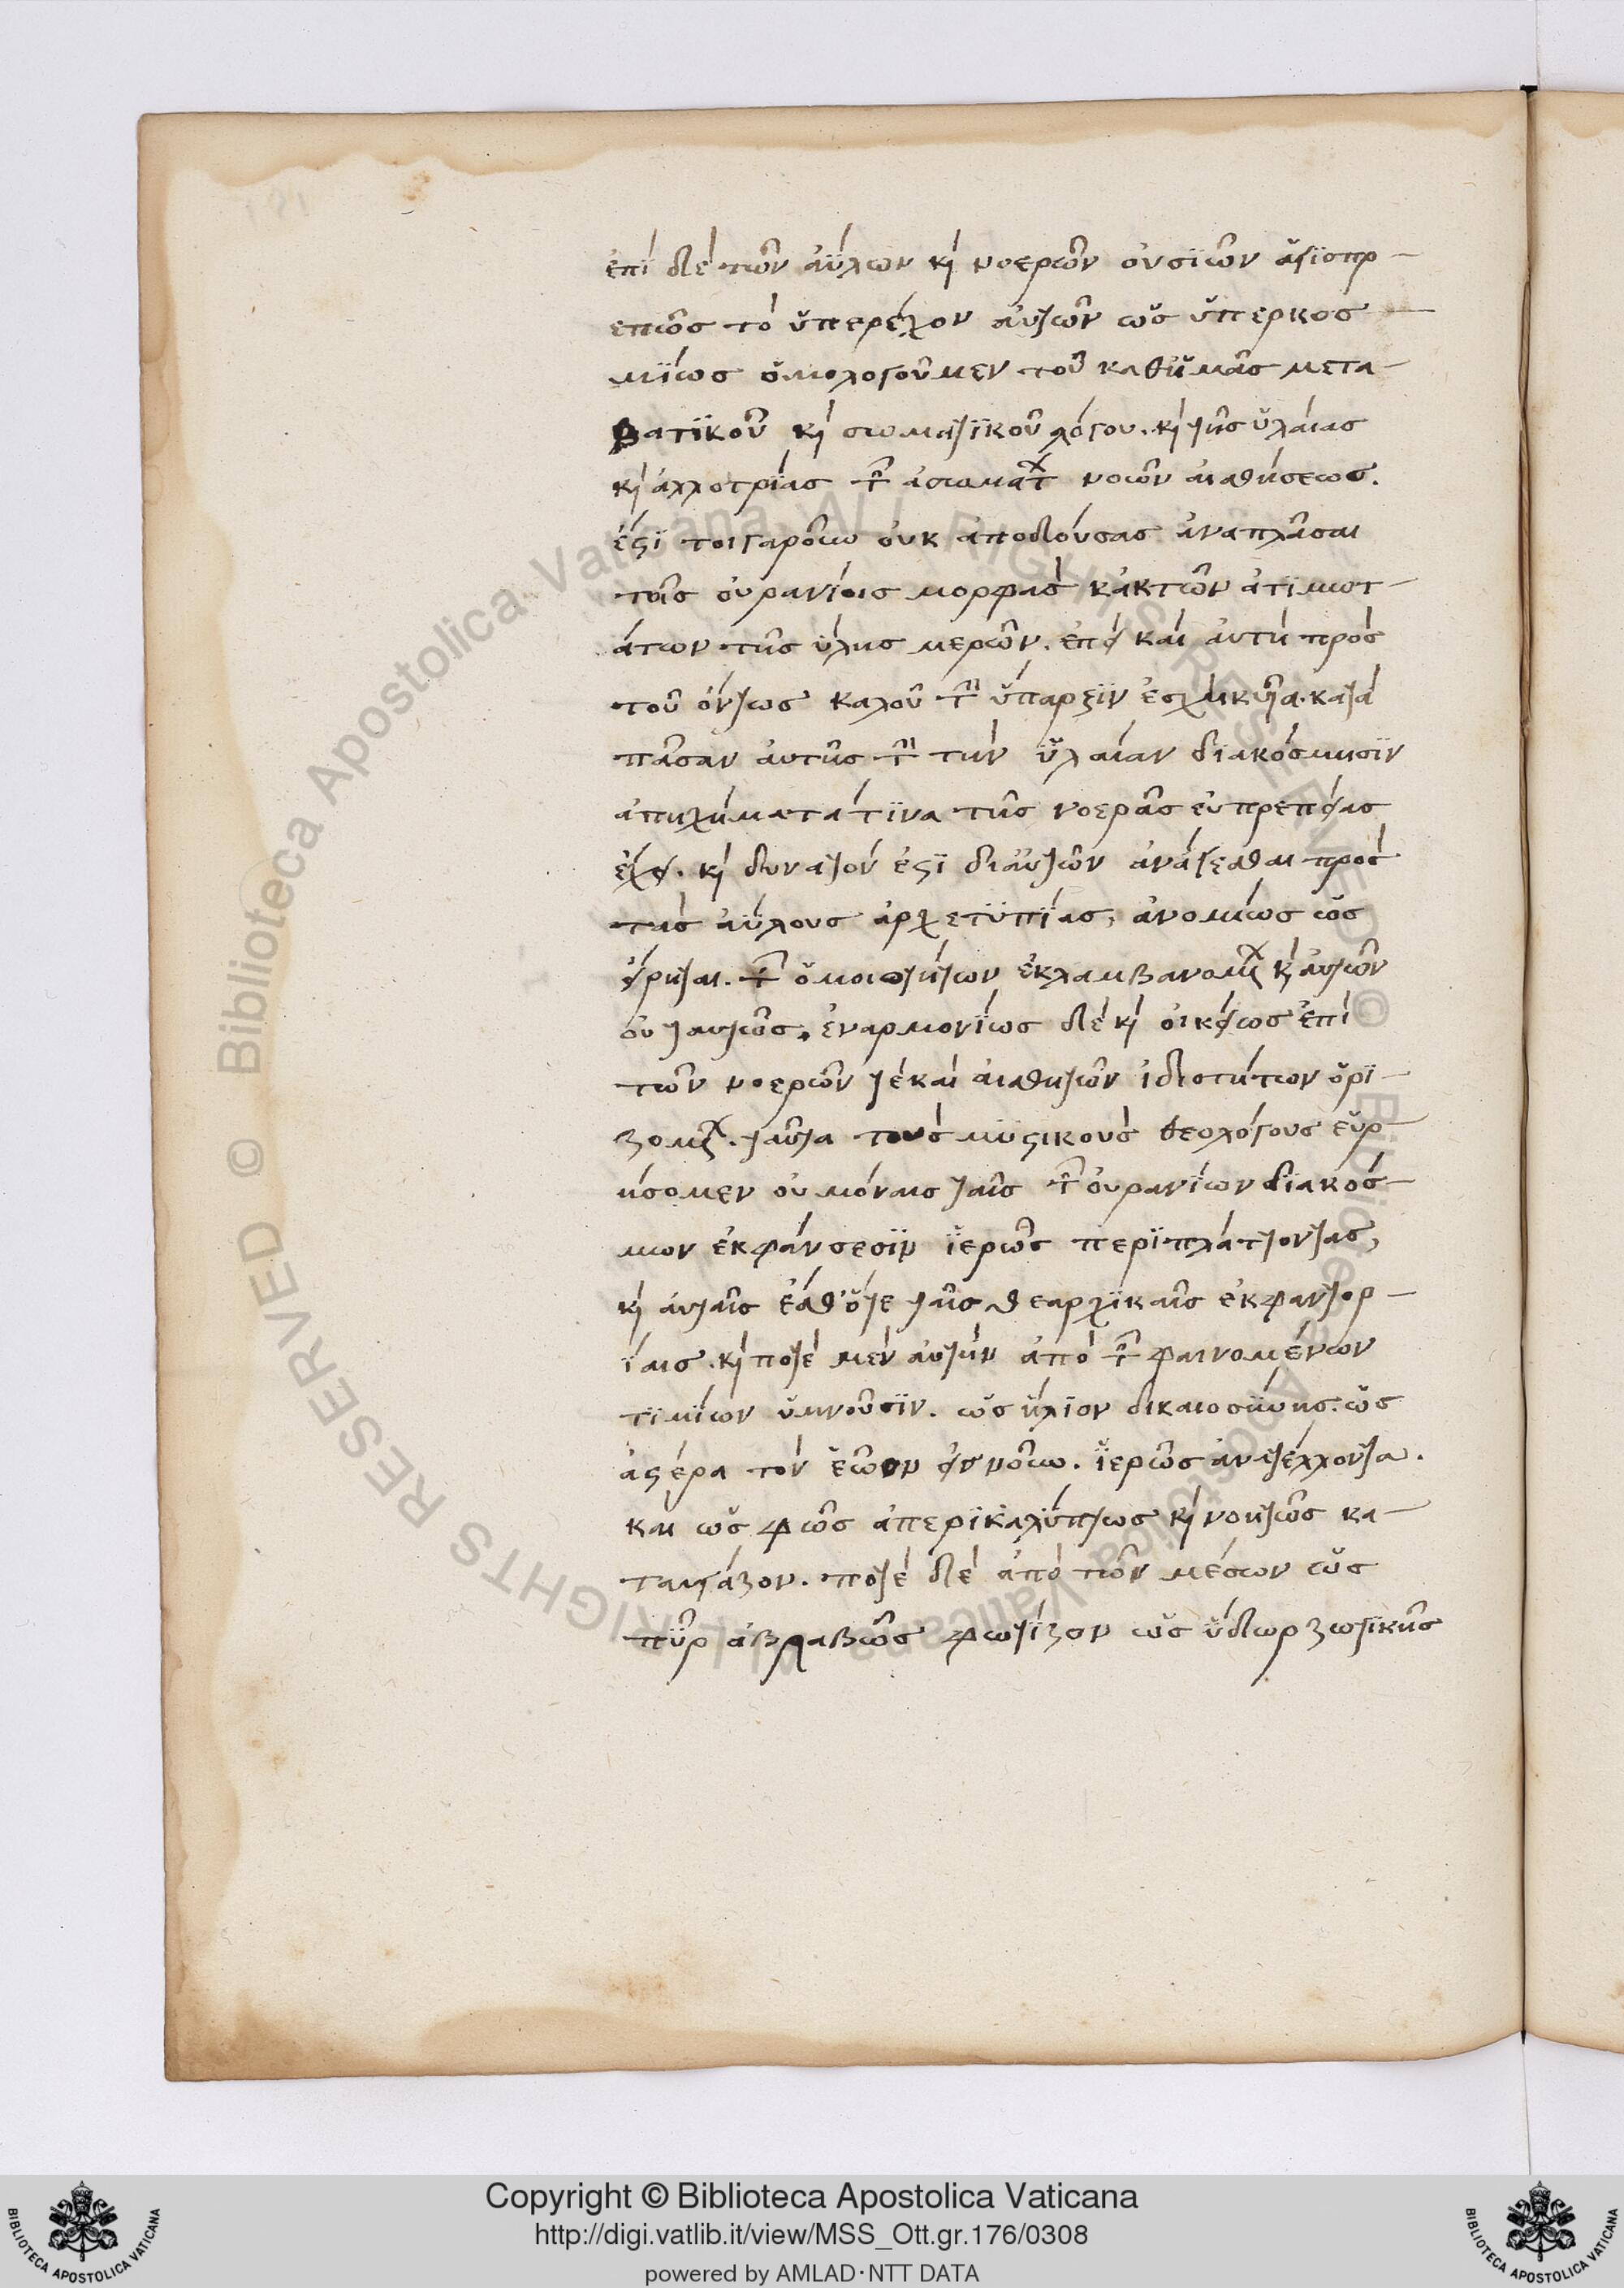 ἐπῒ δὲ τῶν ἀΰλων κὶ νοερῶν οὐσϊῶν ἁγϊοπρ-
επῶς τὸ ὑπερέχον αὐτῶν ὡς ὑπερκοσ-
μΐως ὁμολογοῦμεν τοῦ καθημᾶς μετα-
βατϊκοῦ κὶ σωματϊκοῦ λόγου. κὶ τῆς ὑλάιας
κὶ ἀλλοτρΐας τ̑ ἀσωμάτ νοῶν αισθήσεως.
ἔστϊ τοιγαροῦν οὐκ ἀποδούσας ἀναπλᾶσαι
τοῖς οὐρανΐοις μορφὰς κἀκτῶν ἀτϊμωτ-
άτων τῆς ὕλης μερῶν. ἐπεὶ καὶ ἀυτὴ πρὸς
τοῦ ὄντως καλοῦ τ̑ ὕπαρξϊν ἐσχηκυῖα. κατὰ
πᾶσαν ἀυτῆς τ̑ τὴν ὑλαίαν δϊακόσμησϊν
ἀπηχήματά τϊνα τῆς νοερᾶς εὐπρεπείας
ἔχει. κὶ δυνατόν ἐστϊ διἀυτῶν ἀνάγεσθαι πρὸς
τὰς ἀΰλους ἀρχετϋπΐας, ἀνομίως ὡς
εἴρηται. τ̑ ὁμοιωτήτων ἐκλαμβανομ κὶ ἀυτῶν
οὐ ταυτῶς, ἐναρμονΐως δὲ κὶ οἰκείως ἐπὶ
τῶν νοερῶν τὲ καὶ αισθητῶν ἰδιοτήτων ὁρϊ-
ζομ. ταῦτα τοὺς μϋστικοὺς θεολόγους εὑρ-
ήσομεν οὐ μόναις ταῖς τ̑ οὐρανΐων δϊακόσ-
μων ἐκφάνσεσϊν ϊερῶς περϊπλάττοντας,
κὶ ἀυταῖς ἔσθ'ὅτε ταῖς θεαρχϊκαῖς ἐκφαντορ-
ΐαις. κὶ ποτὲ μὲν ἀυτὴν ἀπὸ τ̑ φαινομένων
τϊμΐων ὑμνοῦσϊν. ὡς ἥλϊον δικαιοσΰνης. ὡς
ἀστέρα τὸν ἑῶον εἰς νοῦν. ϊερῶς ἀνατέλλοντα.
καὶ ὡς φῶς ἀπερϊκαλύπτως κὶ νοητῶς κα-
ταυγάζον. ποτὲ δὲ ἀπὸ τῶν μέσων ὡς
πῦρ ἀβλαβῶς φωτίζον ὡς ὕδωρ ζωτϊκῆς
Copyright © Biblioteca Apostolica Vaticana
http://digi.vatlib.it/view/MSS_Ott.gr.176/0308
powered by AMLAD·NTT DATA